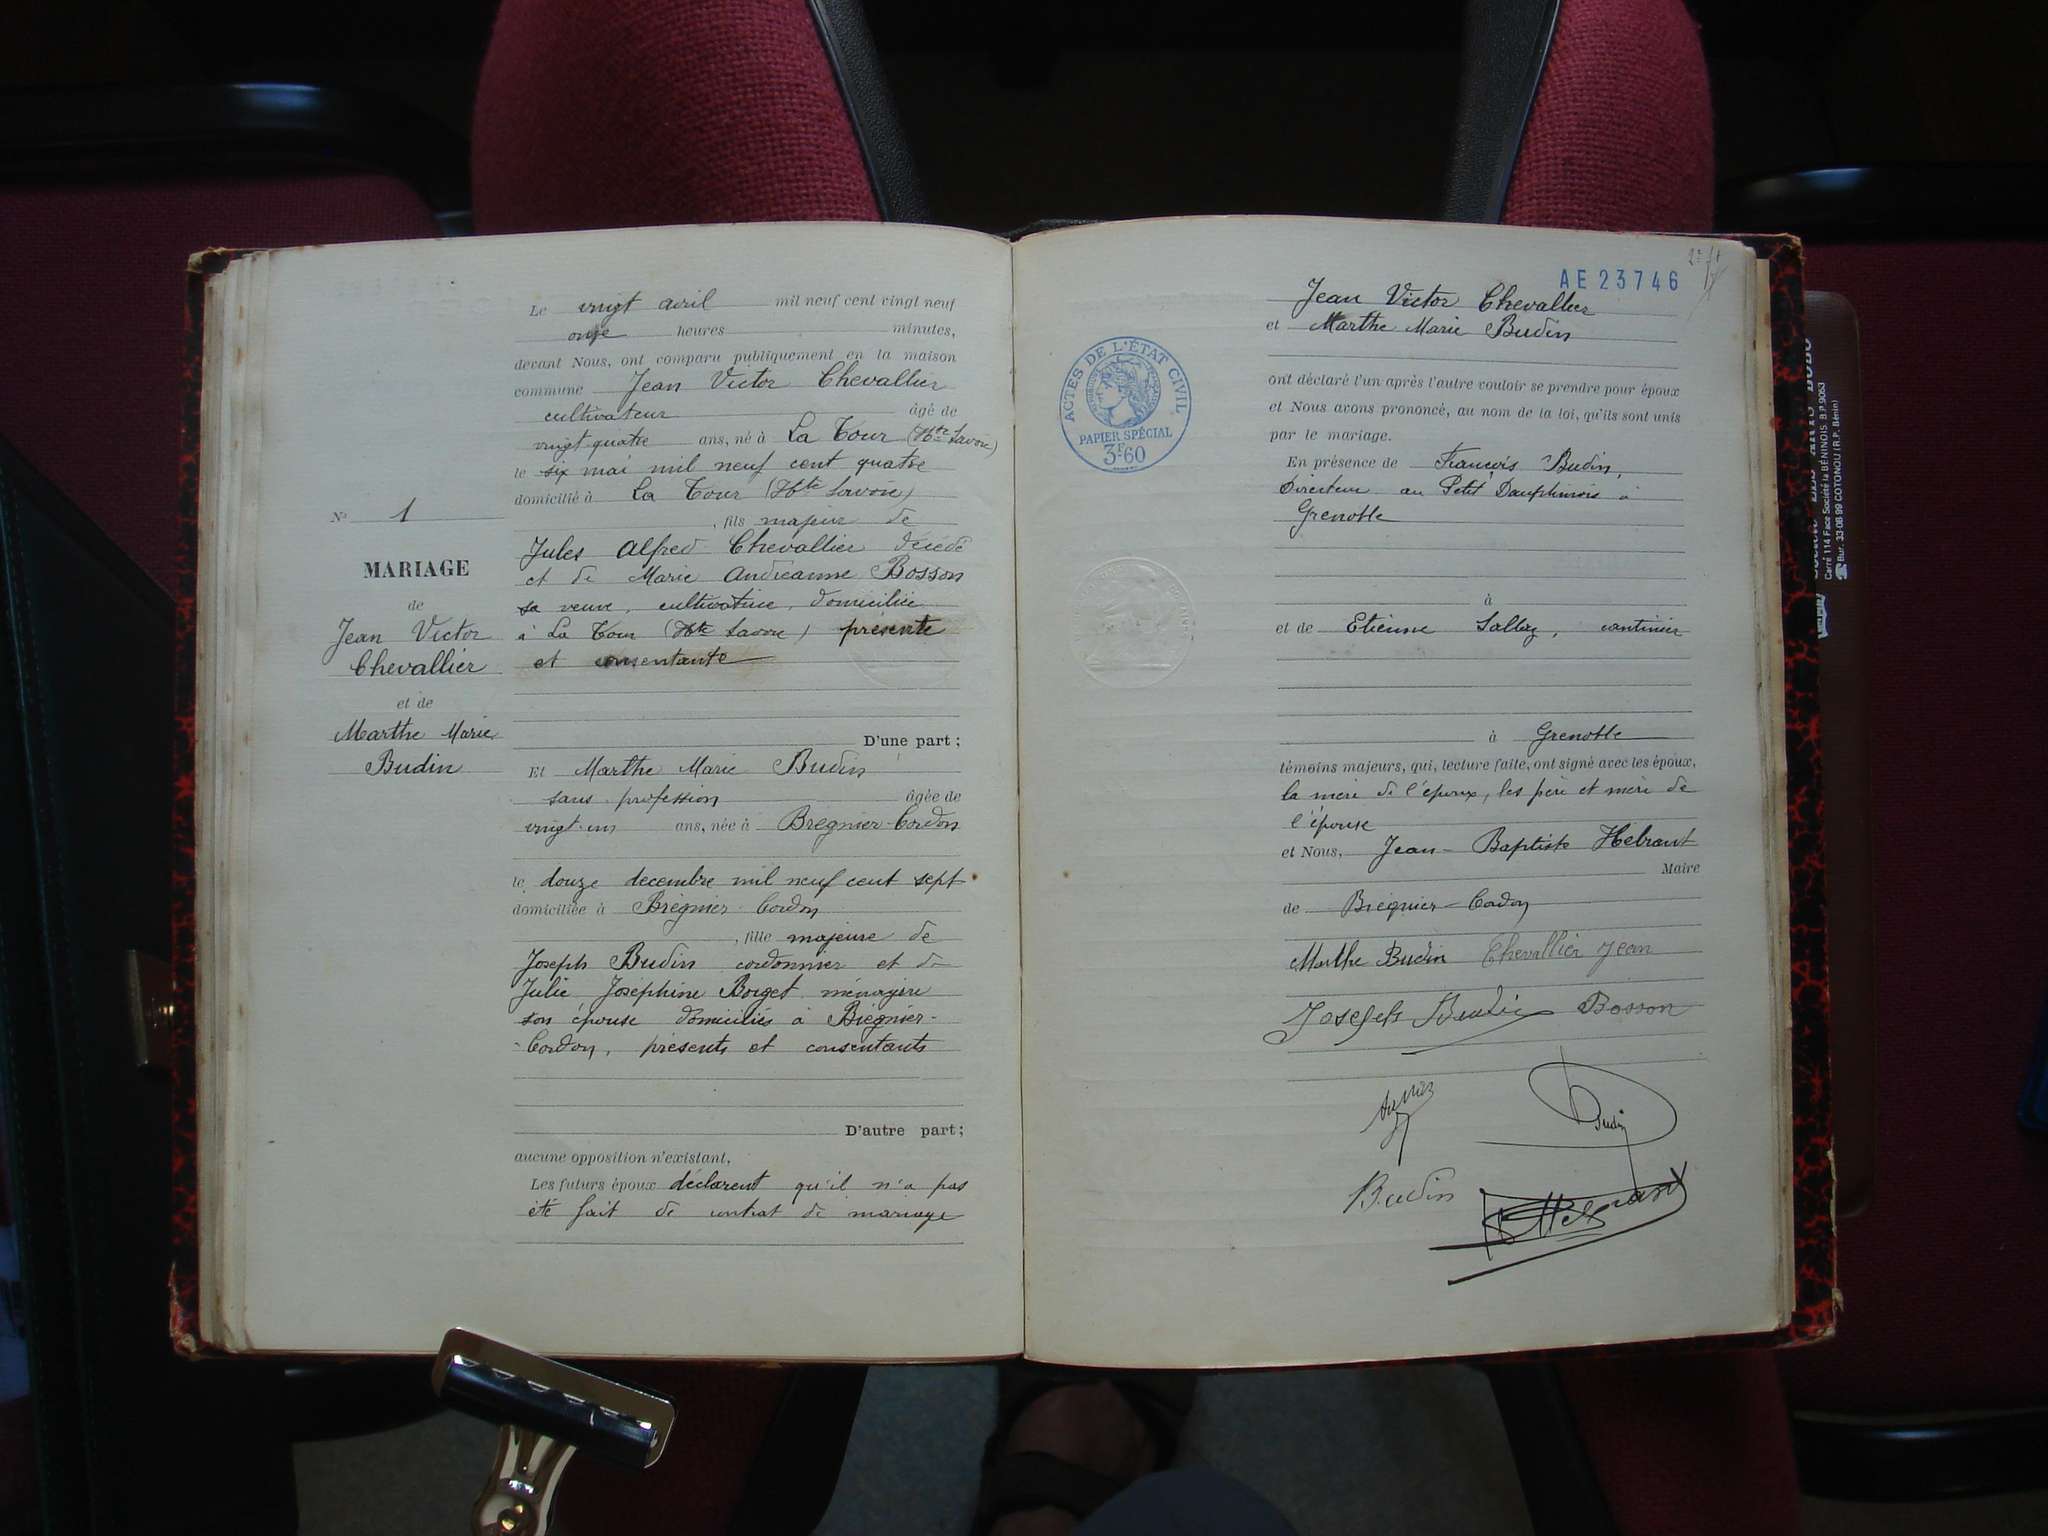 Le vingt avril mil neuf cent vingt neuf
onze heures minutes,
devant Nous, ont comparu publiquement en la maison
commune Jean Victor Chevallier
cultivateur âgé de
vingt quatre ans, né à La Tour (Hte Savoie)
le six mai mil neuf cent quatre
domicilié à La Tour (Hte Savoie)
, fils majeur de
Jules Alfred Chevallier décédé
et de Marie Andréanne Bosson
sa veuve, cultivatrice, domiciliée
à La Tour (Hte Savoie) présente
et consentante
D'une part ;
Et Marthe Marie Budin
sans profession âgée de
vingt-un ans, née à Brégnier-Cordon
le douze décembre mil neuf cent sept
domiciliée à Brégnier-Cordon
, fille majeure de
Joseph Budin cordonnier et de
Julie Joséphine Borget ménagère
son épouse domiciliés à Brégnier-
-Cordon, présents et consentants
D'autre part ;
aucune opposition n'existant,
Les futurs époux déclarent qu'il n'a pas
été fait de contrat de mariage
No 1
MARIAGE
de
Jean Victor
Chevallier
et de
Marthe Marie
Budin
AE 23746
Jean Victor Chevallier
et Marthe Marie Budin
ont déclaré l'un après l'autre vouloir se prendre pour époux
et Nous avons prononcé, au nom de la loi, qu'ils sont unis
par le mariage.
En présence de François Budin,
Directeur au Petit Dauphinois à
Grenoble
à
et de Etienne continier
à Grenoble
témoins majeurs, qui, lecture faite, ont signé avec les époux,
la mère de l'époux, les père et mère de
l'épouse
et Nous, Jean-Baptiste Hebrard
Maire
de Brégnier-Cordon
Marthe Budin Chevallier Jean
Joseph Budin Bosson
Budin
Budin
ACTES DE L'ÉTAT CIVIL
PAPIER SPÉCIAL
3F60
Carré 114 Face Société la BÉNINOIS. B.P. 9053
Bur. 33-08-99 COTONOU (R.P. Bénin)